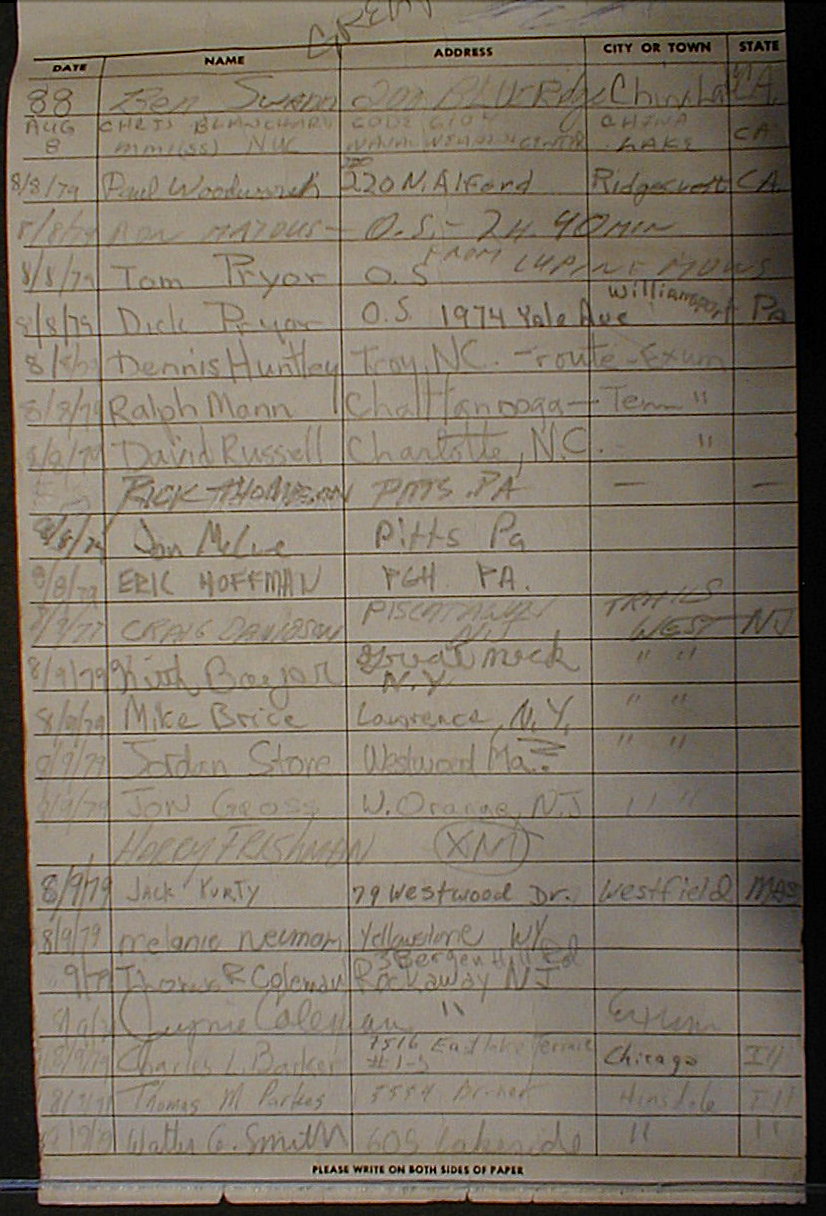 GREAT
DATE NAME ADDRESS CITY OR TOWN STATE
88 Ben Swann 200 BLUE Ridge China La CA.
AUG 8 CHRIS BLANCHARD CODE CHINA LAKE CA
NWC NAVAL WEAPONS CENTER
8/8/79 Paul Woodworth 220 N. Alford Ridgecrest CA
8/8/79 RON MATOUS - O.S. - 2H. 40 MIN
FROM LUPINE MDWS
8/8/79 Tom Pryor O.S
8/8/79 Dick Pryor O.S. 1974 Yale Ave Williamsport Pa
8/8/79 Dennis Huntley Troy, NC. - route - Exum
8/8/79 Ralph Mann Chattanooga - Tenn "
8/8/79 David Russell Charlotte, N.C. - "
RICK THOMPSON PITTS. PA — —
8/8/79 Jon McCue Pitts Pa
8/8/79 ERIC HOFFMAN PGH PA.
CRAIG DAVIDSON PISCATAWAY N.J. TRAILS WEST NJ
8/9/79 Great Neck N.Y. " "
8/9/79 Mike Brice Lawrence, N.Y. " "
8/9/79 Jordan Stone Westwood Ma. " "
8/9/79 JON GROSS W. Orange, NJ " "
HARRY FRISHMAN XM
8/9/79 JACK YURTY 79 Westwood Dr. Westfield MAS
8/9/79 melanie neuman Yellowstone WY
9/79 Thomas R Coleman 3 Bergen Hill Rd Rockaway NJ
Coleman " Exum
8/9/79 Charles L Barker 7516 Eastlake Terrace #1-S Chicago Ill
Thomas M Parkes Hinsdale Ill
Walter G. Smith 605 Lakeside " "
PLEASE WRITE ON BOTH SIDES OF PAPER